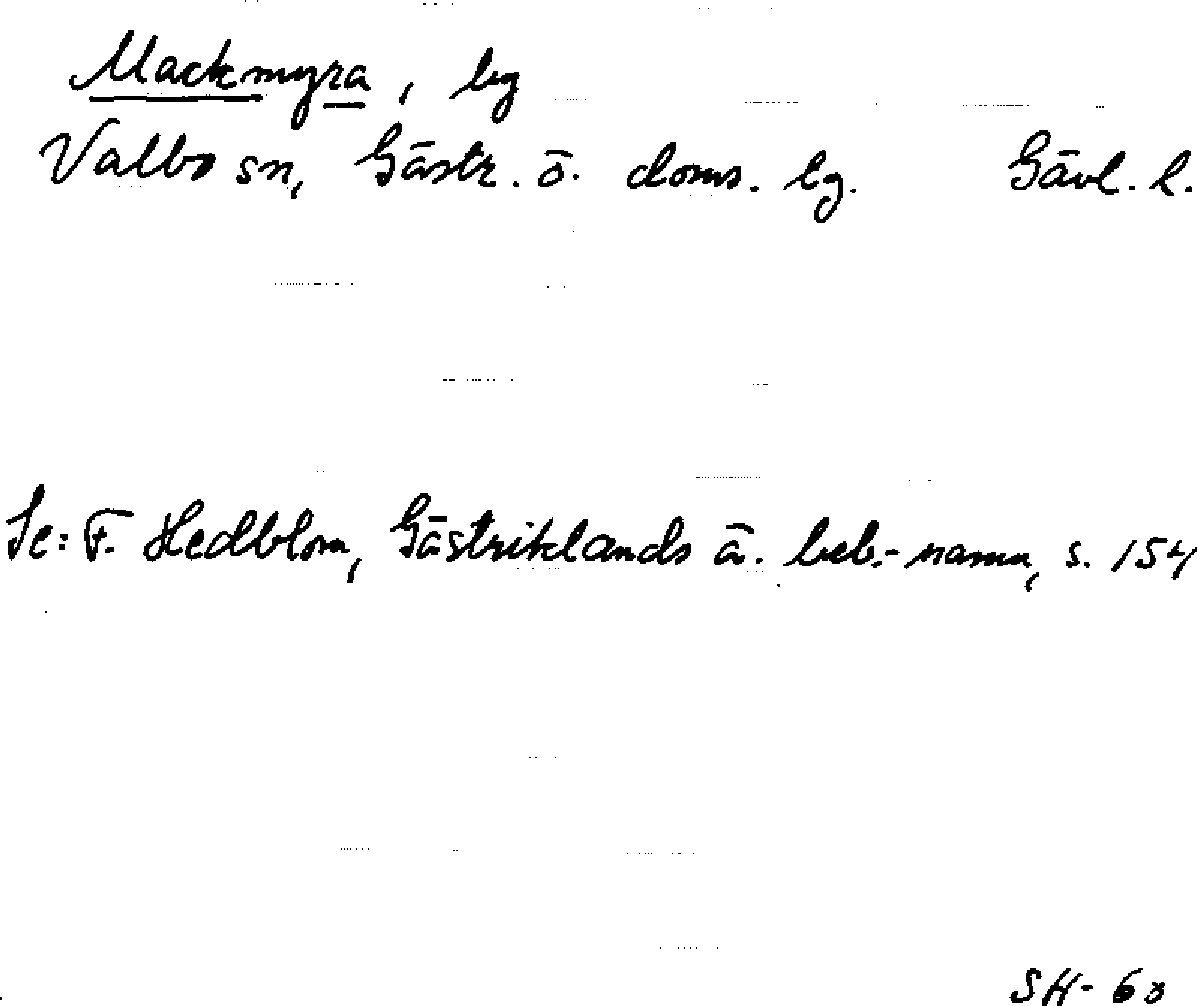 Mackmyra, by
Valbo sn, Gästr. ö. doms. lg. Gävl. l.
Se: F. Hedblom, Gästriklands ä. beb.-namn, s. 154
SH-60